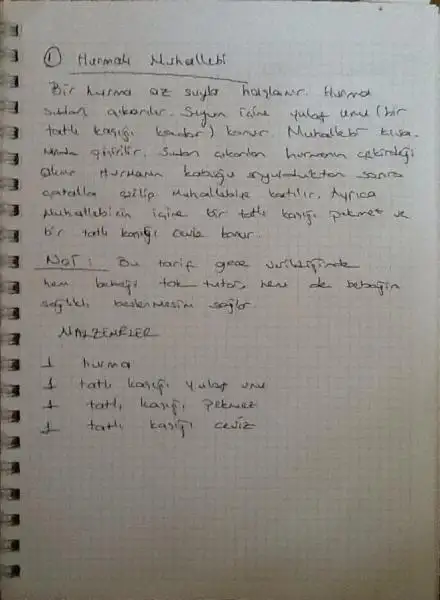 ① Hurmalı Muhallebi
Bir hurma az suyla haşlanır. Hurma
sudan çıkarılır. Suyun içine yulaf unu (bir
tatlı kaşığı kadar) konur. Muhallebi kıva-
mında pişirilir. Sudan çıkarılan hurmanın çekirdeği
alınır Hurmanın kabuğu soyulduktan sonra
çatalla ezilip muhallebiye katılır. Ayrıca
Muhallebinin içine bir tatlı kaşığı pekmez ve
bir tatlı kaşığı ceviz konur.
NOT: Bu tarif gece verildiğinde
hem bebeği tok tutar, hem de bebeğin
sağlıklı beslenmesini sağlar
MALZEMELER
1 hurma
1 tatlı kaşığı yulaf unu
1 tatlı kaşığı pekmez
1 tatlı kaşığı ceviz